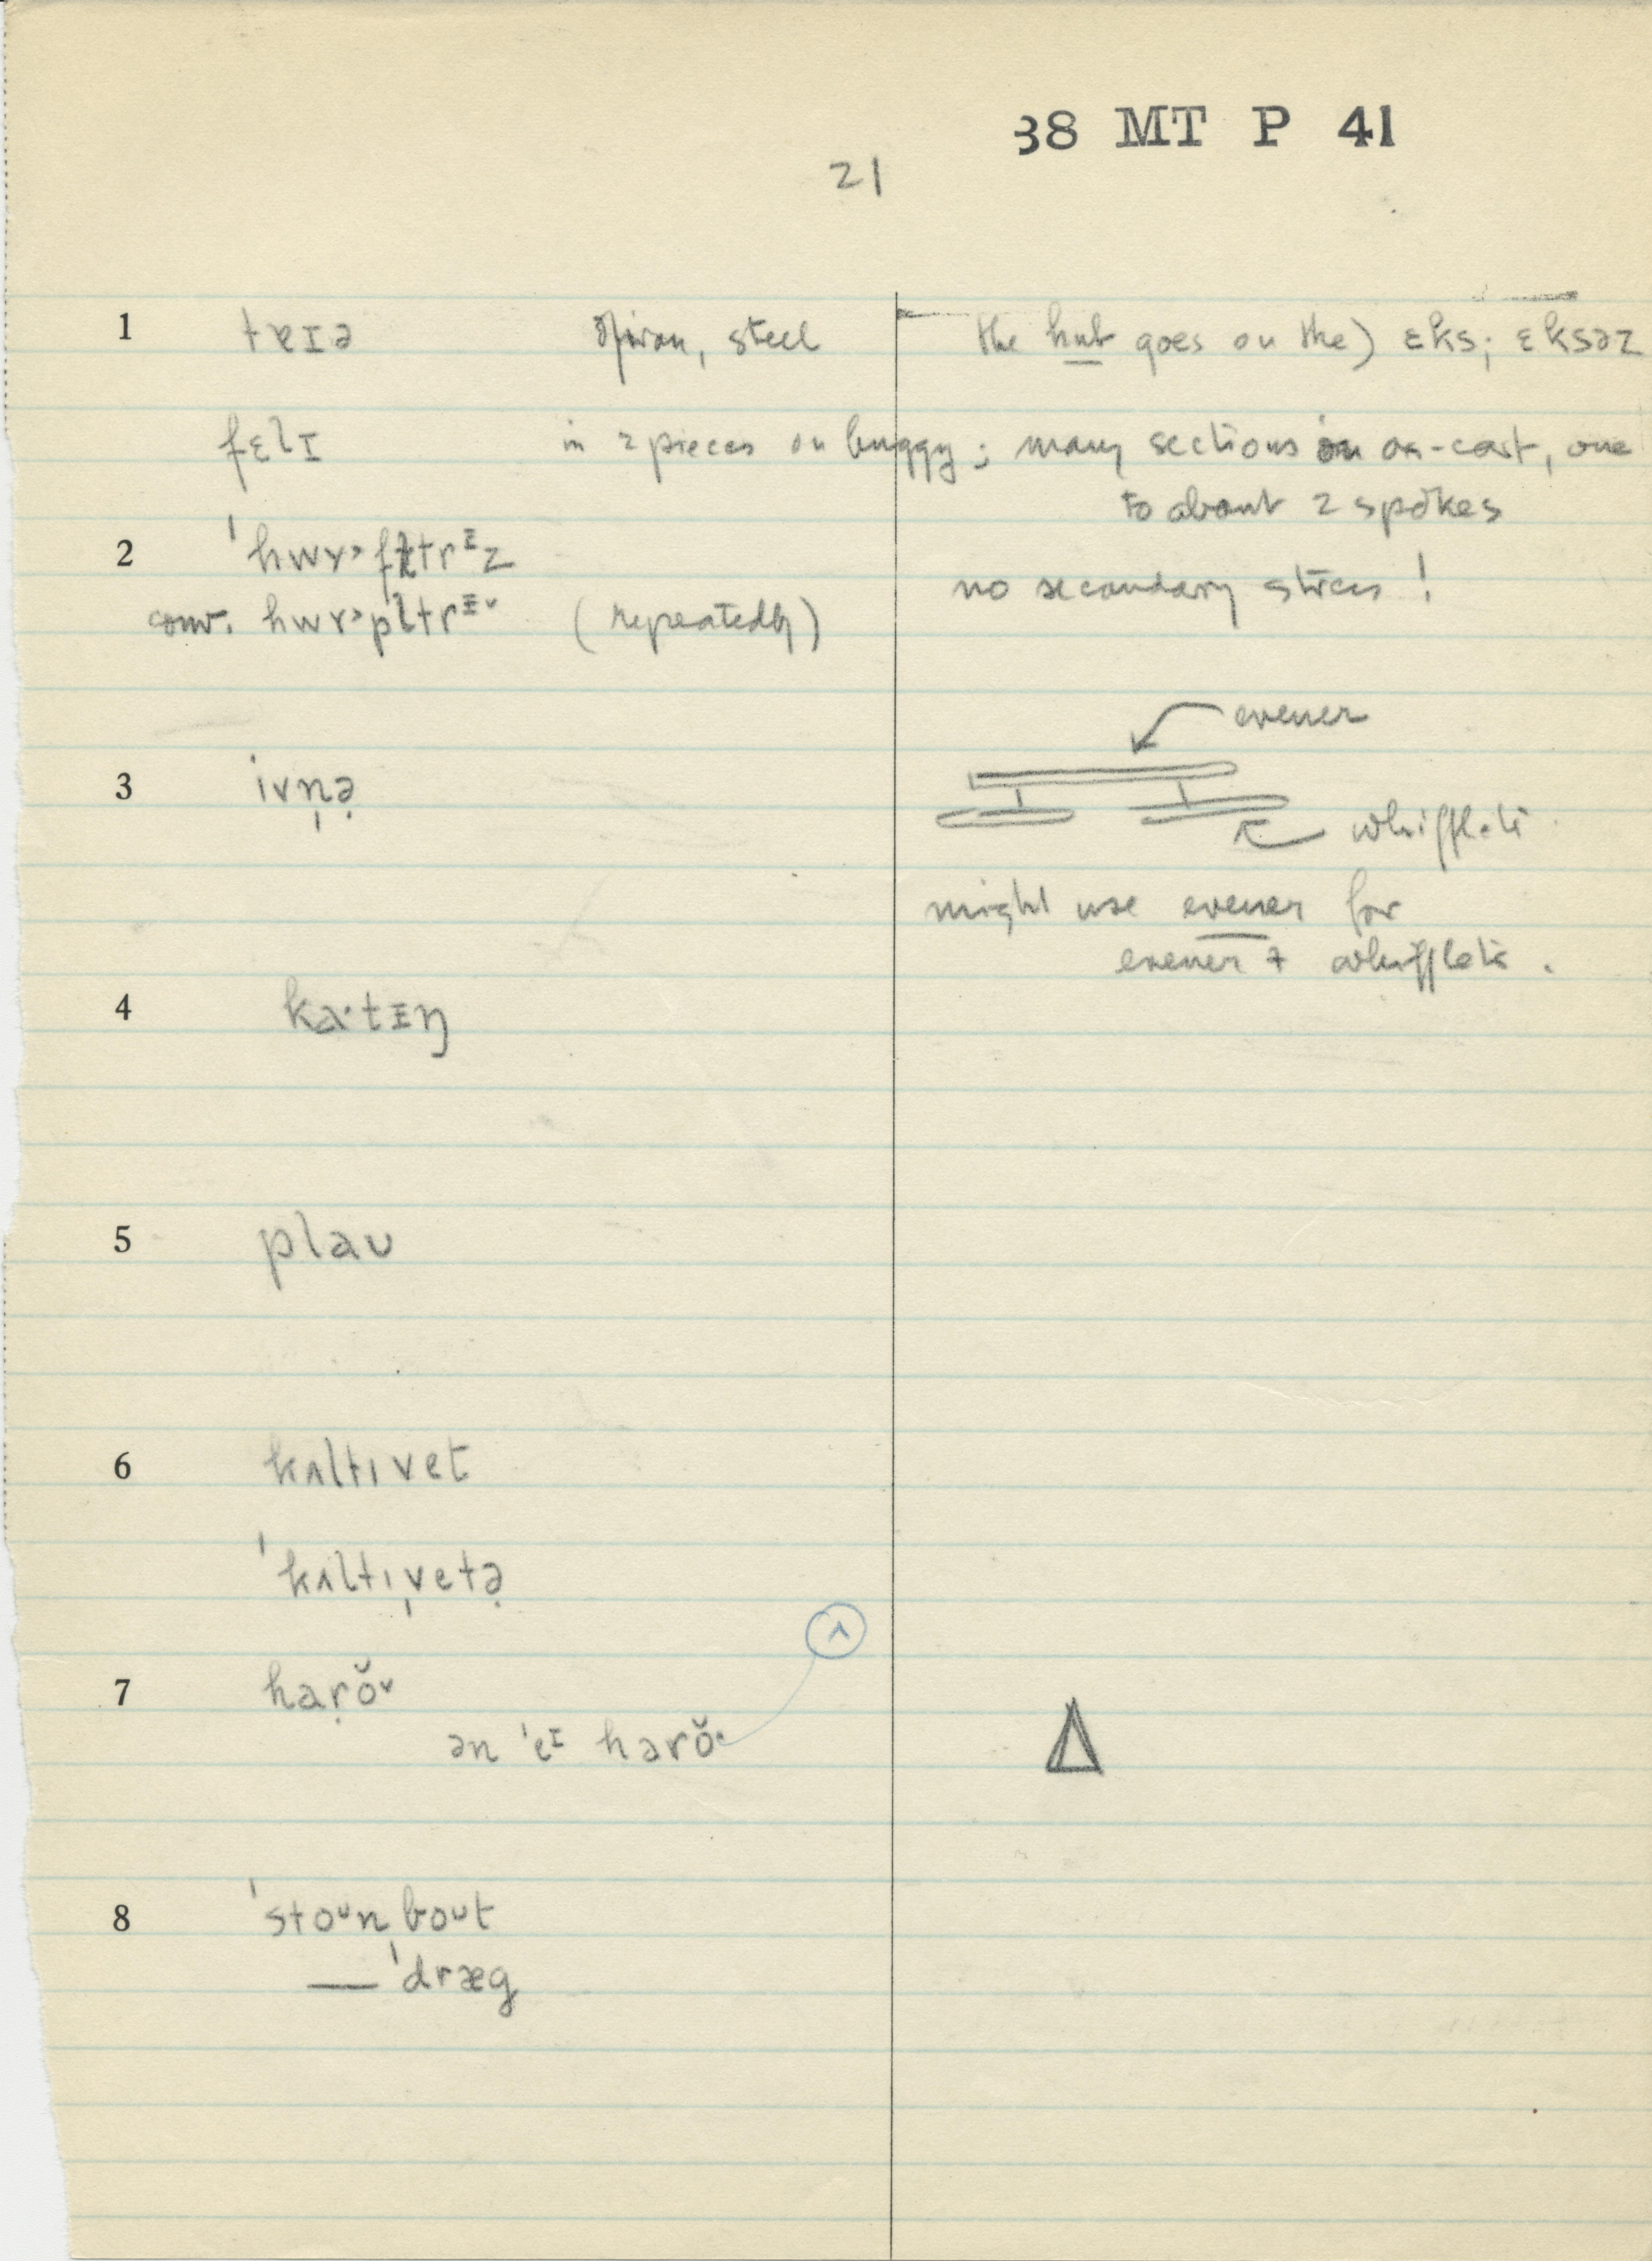 38 MT P 41
21
1 tɐɪə of iron, steel the hub goes on the) ɛks; ɛksəz
fɛlɪ in 2 pieces on buggy; many sections on ox-cart, one
to about 2 spokes
2
conv. (repeatedly) no secondary stress!
evener
3 ivn̩ə̣
whiffletr
might use evener for
evener + whiffletr.
4 ka·tɪŋ
5 plaʊ
6 kʌltɪvet
ˈkʌltɪˌvetə̣
ʌ
7 haṛŏᵛ
ən ˈeᶦ harŏ·
8 ˈstoᵘnˌboᵘt
— ˈdræg